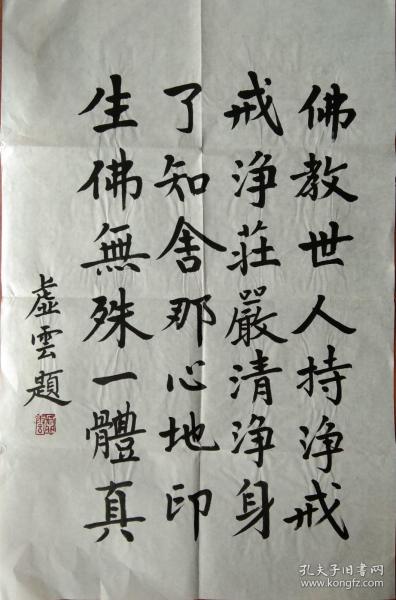 佛教世人持浄戒
戒浄莊嚴清浄身
了知舍那心地印
生佛無殊一體真
虛雲題
孔夫子旧书网
www.kongfz.com